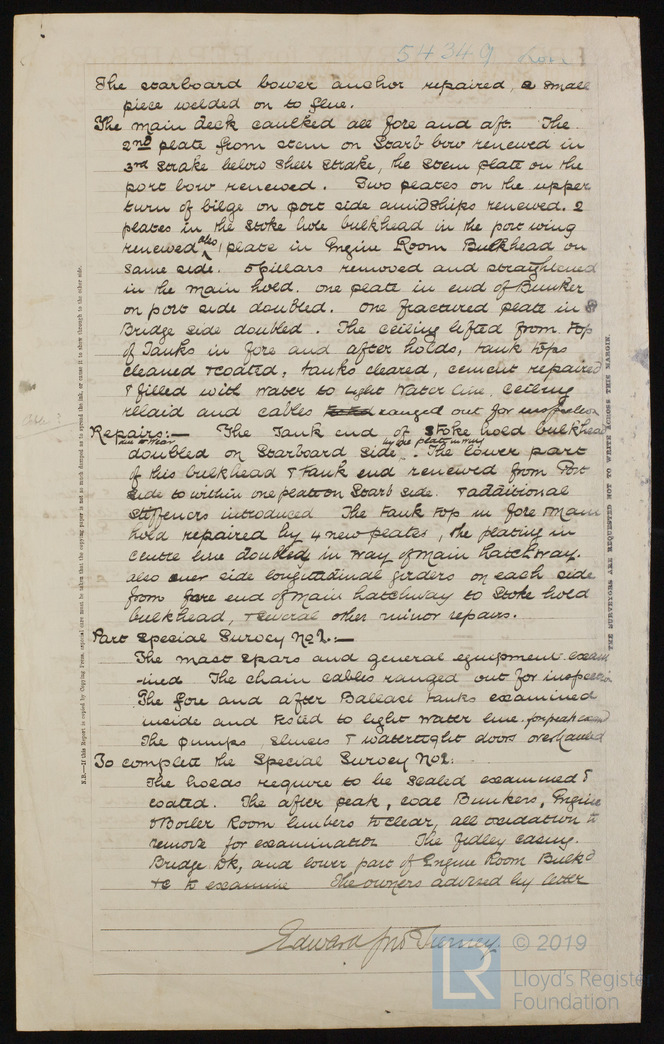 54349 Lon
The starboard bower anchor repaired, a small
piece welded on to flue.
The main deck caulked all fore and aft. The
2nd plate from stem on Starb bow renewed in
3rd strake below sheer strake, the stem plate on the
port bow renewed. Two plates on the upper
turn of bilge on port side amidships renewed. 2
plates in the stoke hole bulkhead in the port wing
renewed also 1 plate in Engine Room Bulkhead on
same side. pillars removed and straightened
in the main hold. one plate in end of Bunker
on port side doubled. one fractured plate in
Bridge side doubled. The ceiling lifted from top
of Tanks in fore and after holds, tank tops
cleaned & coated; tanks cleared, cement repaired
& filled with water to light water line, ceiling
relaid and cables ranged out for inspection
Repairs:— The Tank end of Stoke hold bulkhead
doubled on Starboard side. The lower part
of this bulkhead & tank end renewed from Port
side to within one plate on Starb side. & additional
stiffeners introduced The tank top in fore & main
hold repaired by 4 new plates, the plating in
centre line doubled in way of main hatchway.
also over side longitudinal girders on each side
from fore end of main hatchway to Stoke hold
bulkhead, & several other minor repairs.
Part Special Survey No 1.—
The mast spars and general equipment exam
-ined The chain cables ranged out for inspection
The fore and after Ballast tanks examined
inside and tested to light water line. forepeak
The pumps, sluices & watertight doors overhauled
To complete the Special Survey No 1:
The holds require to be sealed examined &
coated. The after peak, coal Bunkers, Engine
& Boiler Room limbers to clear, all oxidation to
remove for examination The fidley casing.
Bridge Dk, and lower part of Engine Room Bulkd
&c to examine The owners advised by letter
Edward Jno Turney.
N.B.—If this Report is copied by Copying Press, especial care must be taken that the copying paper is not so much damped as to spread the ink, or cause it to show through to the other side.
THE SURVEYORS ARE REQUESTED NOT TO WRITE ACROSS THIS MARGIN.
© 2019
LR
Lloyd's Register
Foundation